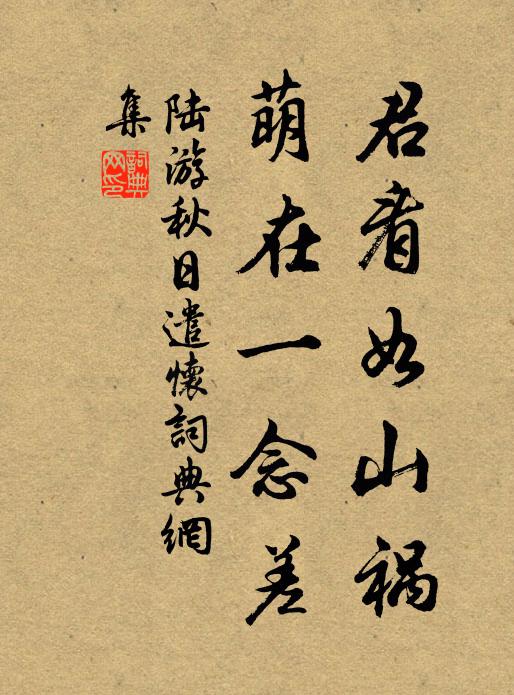 君看如山祸
萌在一念差
陆游秋日遣懷詞典網
集
詞典
网印